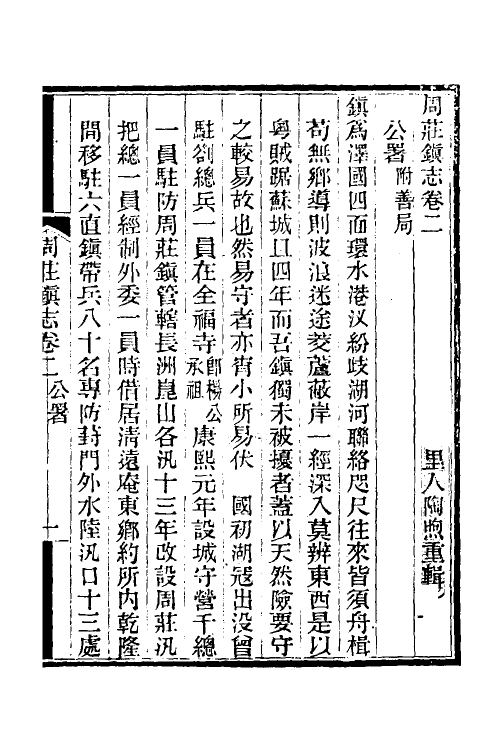 周莊鎮志卷二
里人陶煦重輯
公署附善局
鎮爲澤國四面環水港汊紛歧湖河聯絡咫尺往來皆須舟楫
苟無鄉導則波浪迷途菱蘆蔽岸一經深入莫辨東西是以
粤賊踞蘇城且四年而吾鎮獨未被擾者蓋以天然險要守
之較易故也然易守者亦宵小所易伏　國初湖冦出没曾
駐劄總兵一員在全福寺即楊公承祖康熙元年設城守營千總
一員駐防周莊鎮管轄長洲崑山各汛十三年改設周莊汛
把總一員經制外委一員時借居清遠庵東鄉約所内乾隆
間移駐六直鎮帶兵八十名專防葑門外水陸汛口十三處
周莊鎮志卷二　公署　一